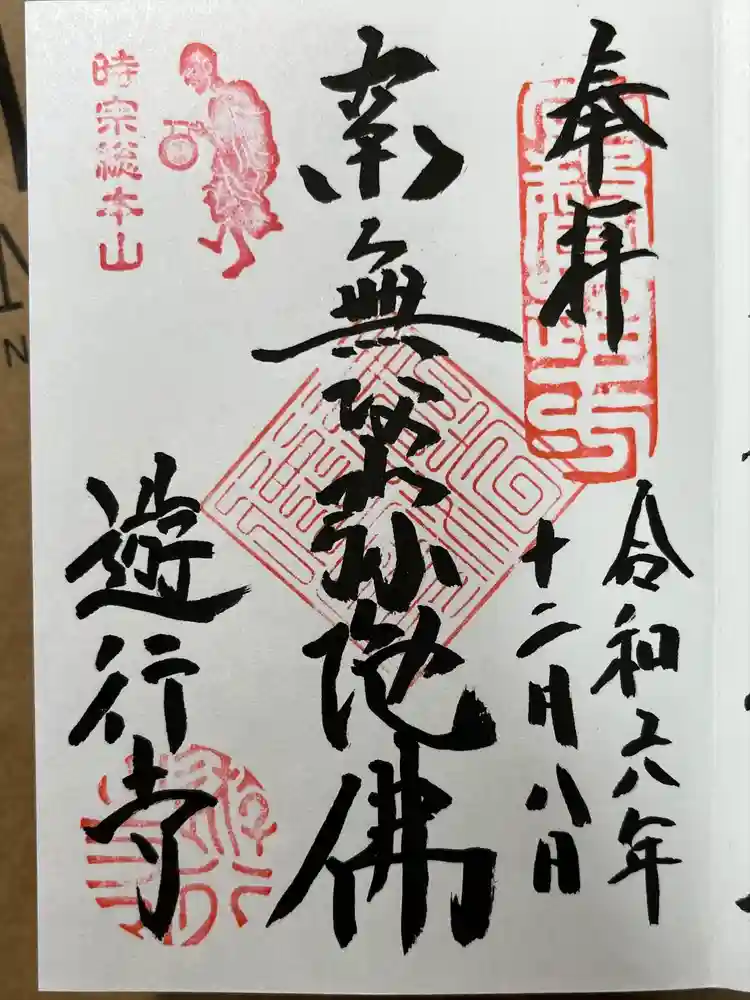 奉拝
令和六年
十二月八日
南無阿弥陀佛
時宗総本山
遊行寺